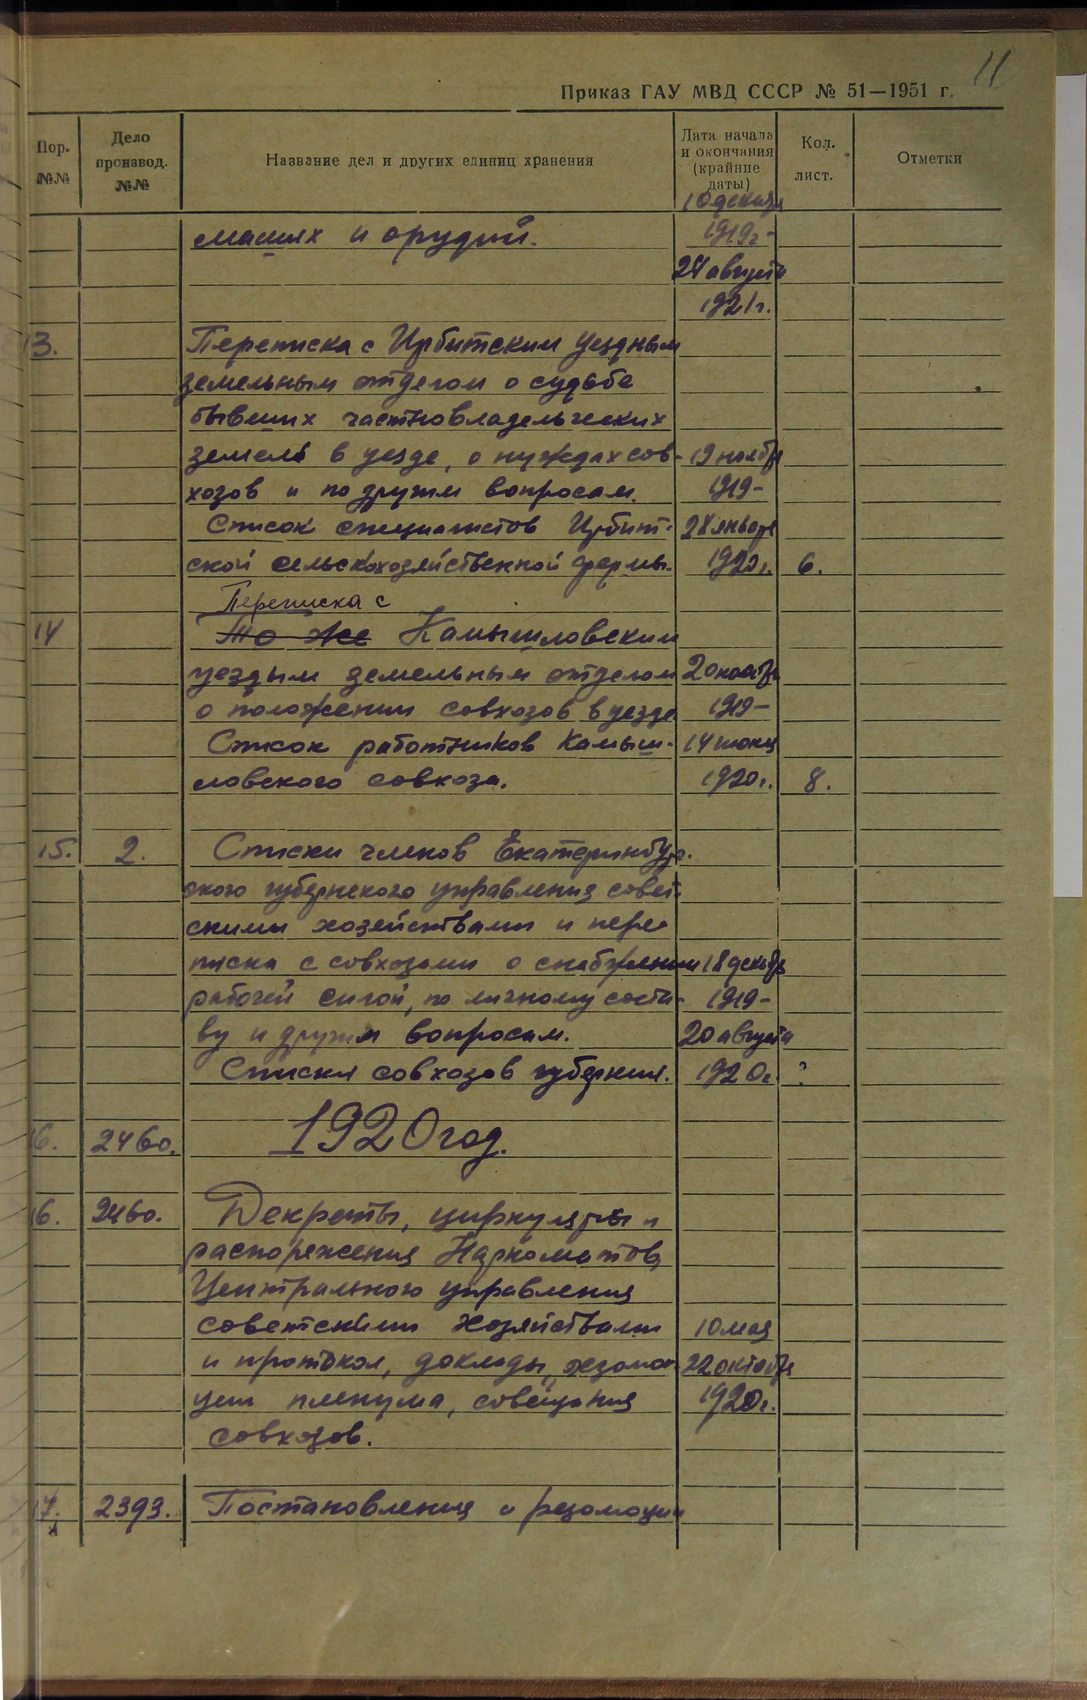 11
Приказ ГАУ МВД СССР № 51—1951 г.
Пор. №№
Дело производ. №№
Название дел и других единиц хранения
Дата начала и окончания (крайние даты)
Кол. лист.
Отметки
10 декабря
и орудий. 1919г-
24 августа
1921г.
13. Переписка с Ирбитским уездным
земельным отделом о судьбе
бывших частновладельческих
земель в уезде, о нуждах сов- 19 ноября
хозов и по другим вопросам. 1919-
Список специалистов Ирбит- 28 января
ской сельскохозяйственной фермы. 1920г. 6.
Переписка с
14 То же Камышловским
уездым земельным отделом 20 ноября
о положении совхозов в уезде 1919-
Список работников Камыш- 14 июня
ловского совхоза. 1920г. 8.
15. 2. Списки членов Екатеринбург-
ского губернского управления совет-
скими хозяйствами и пере-
писка с совхозами о снабжении 18 декабря
рабочей силой, по личному соста- 1919-
ву и другим вопросам. 20 августа
Списки совхозов губернии. 1920г. ?
16. 2460. 1920 год.
16. 2460. Декреты, циркуляры и
распоряжения Наркоматов,
Центрального управления
советскими хозяйствами 10 мая
и протокол, доклады, резолю- 22 октября
ции пленума, совещания 1920г.
совхозов.
17. 2393. Постановления и резолюции